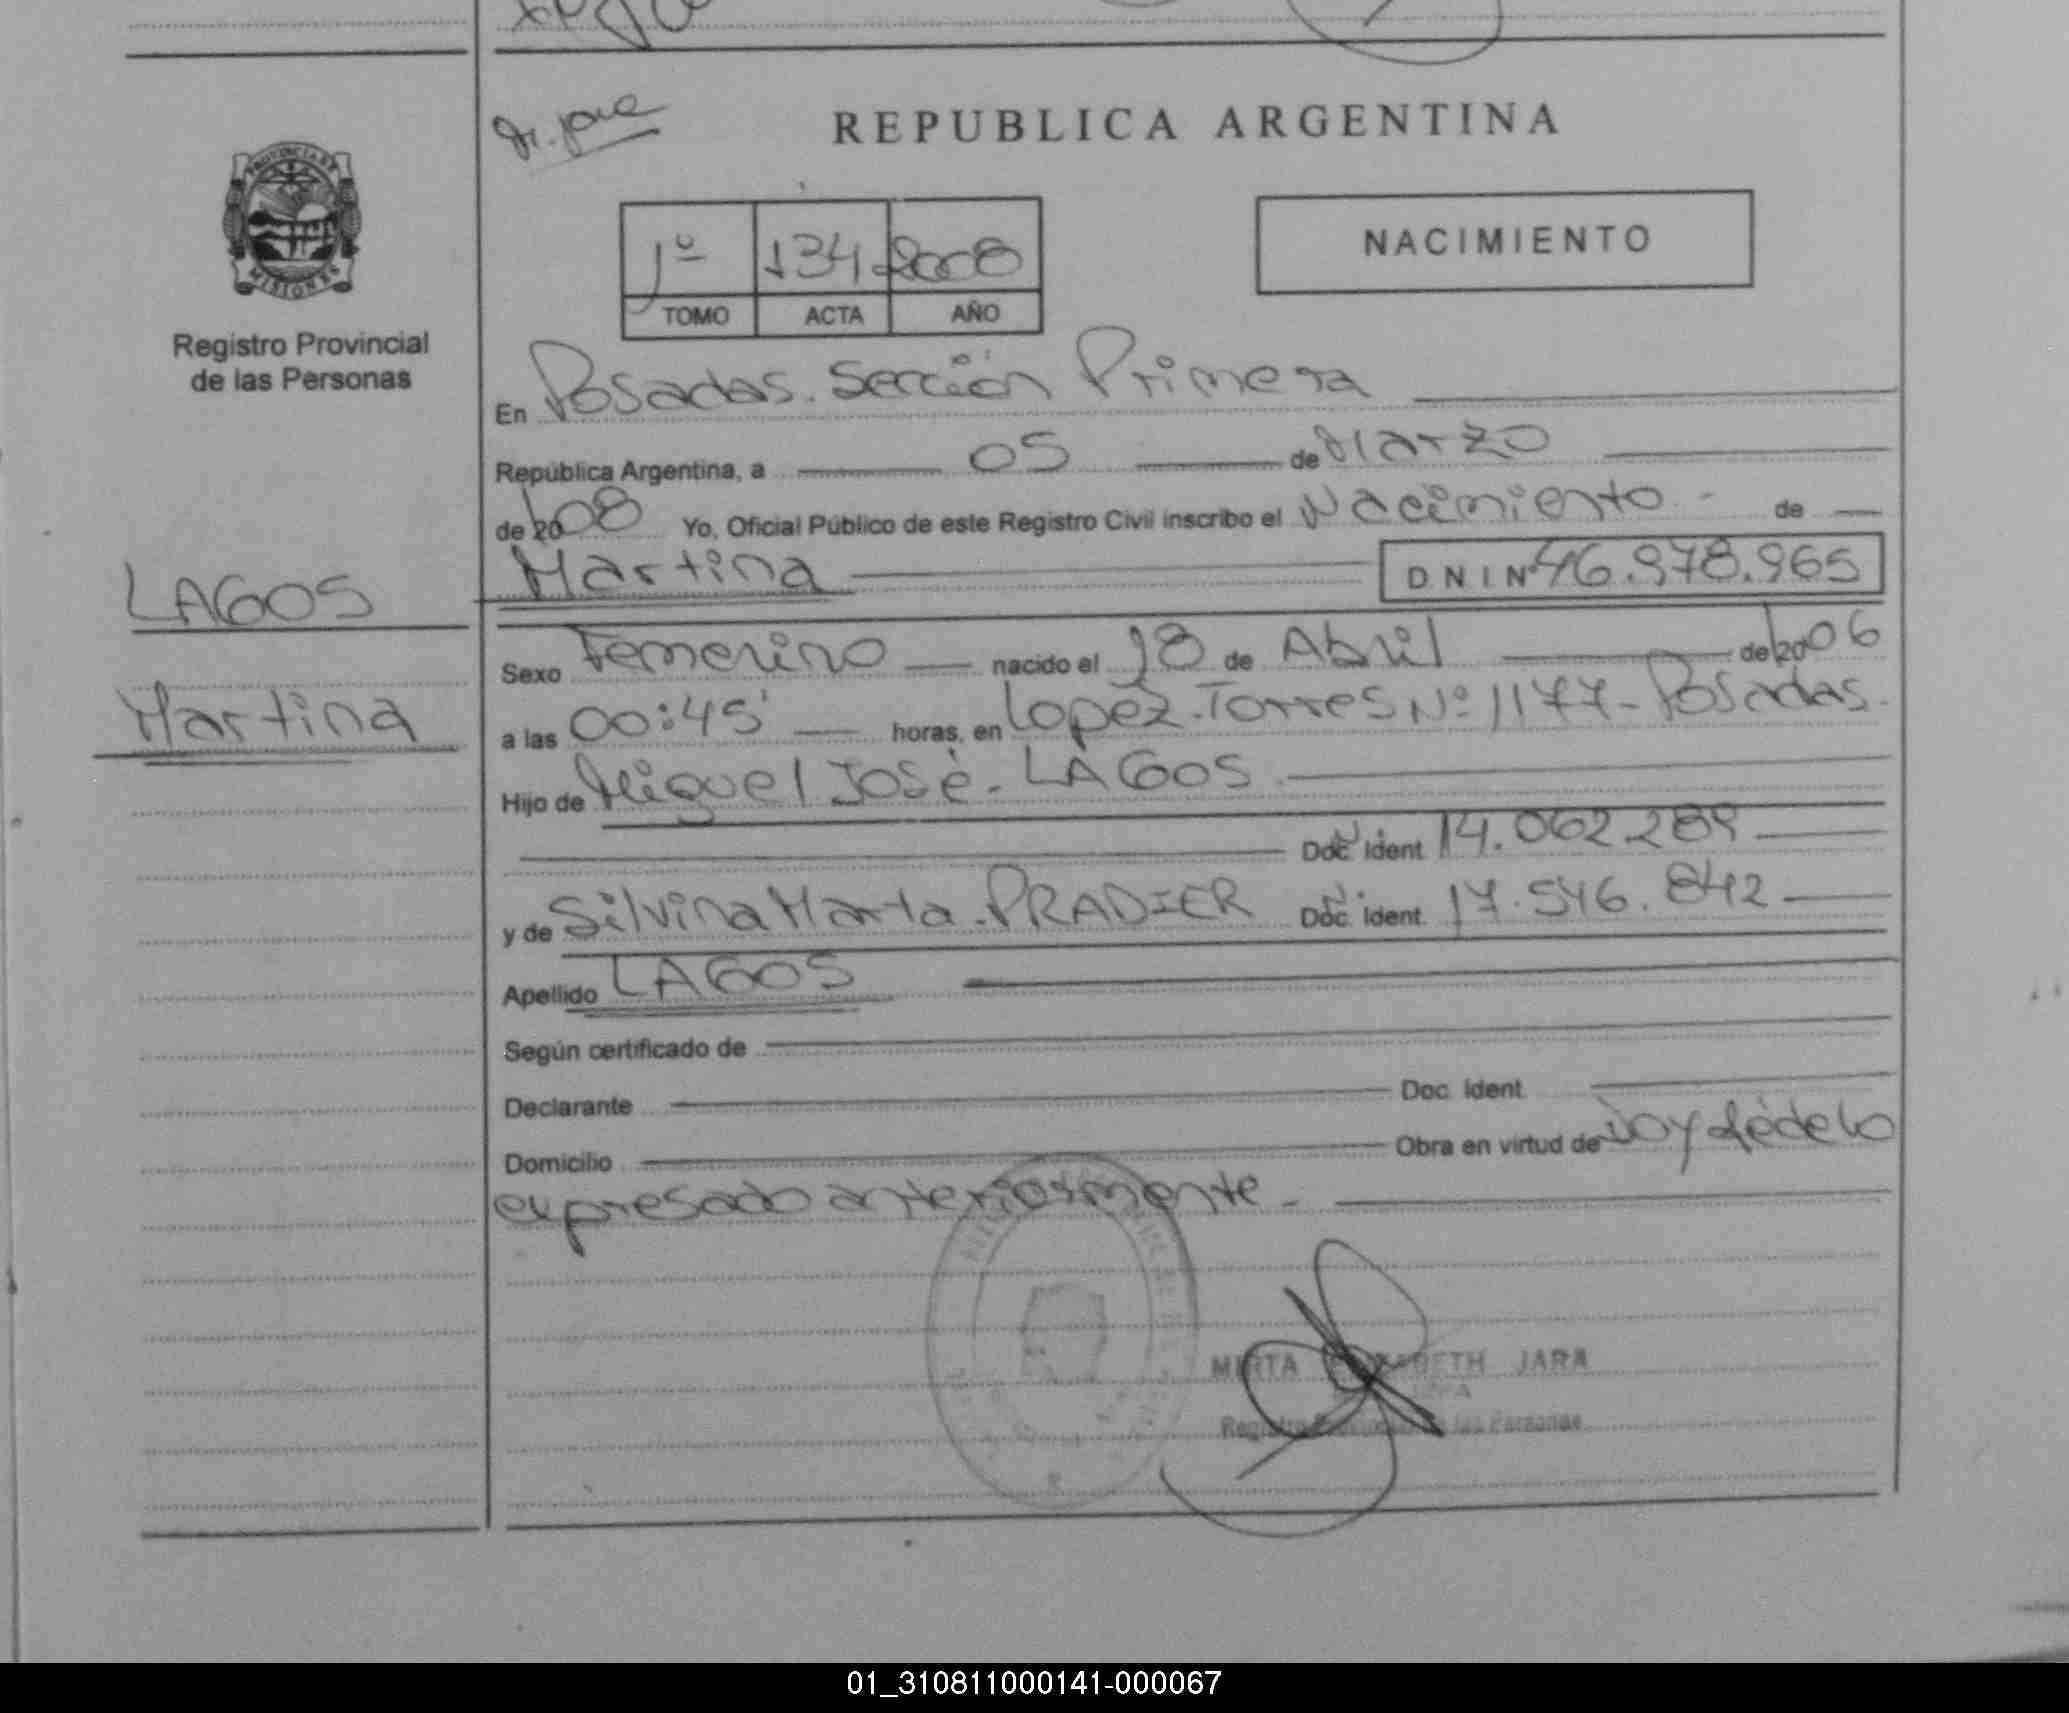 REPUBLICA ARGENTINA
PROVINCIA DE
MISIONES
Registro Provincial
de las Personas
1º 134 2008
TOMO ACTA AÑO
NACIMIENTO
En Posadas. Sección Primera
República Argentina, a 05 de Marzo
de 2008 Yo, Oficial Público de este Registro Civil inscribo el Nacimiento - de
Martina DNI Nº 46.978.965
LAGOS
Martina
Sexo Femenino nacido el 18 de Abril de 2006
a las 00:45' horas, en Lopez Torres Nº 1177 - Posadas.
Hijo de Miguel José. LAGOS
Doc. Ident. 14.062.289
y de Silvina Marta. PRADIER Doc. Ident. 17.546.842
Apellido LAGOS
Según certificado de
Declarante Doc. Ident.
Domicilio Obra en virtud de Doy fé de lo
expresado anteriormente -
MIRTA ELIZABETH JARA
Registro Provincial de las Personas
01_310811000141-000067